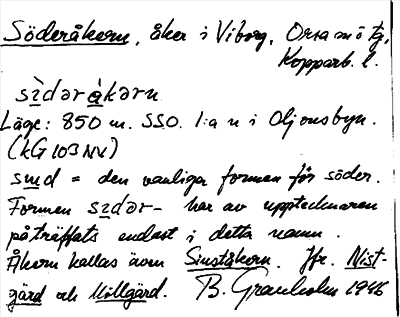 Söderåkern, åker i Viborg, Orsa sn o tg,
Kopparb. l.
sìdər àkərn
Läge: 850 m. SSO. l:a n i Oljonsbyn.
(kG 103 NV)
sud = den vanliga formen för söder.
Formen sidər- har av upptecknaren
påträffats endast i detta namn.
Åkern kallas även Sinståkern. Jfr. Nist-
gärd och Millgärd. B. Granholm 1946